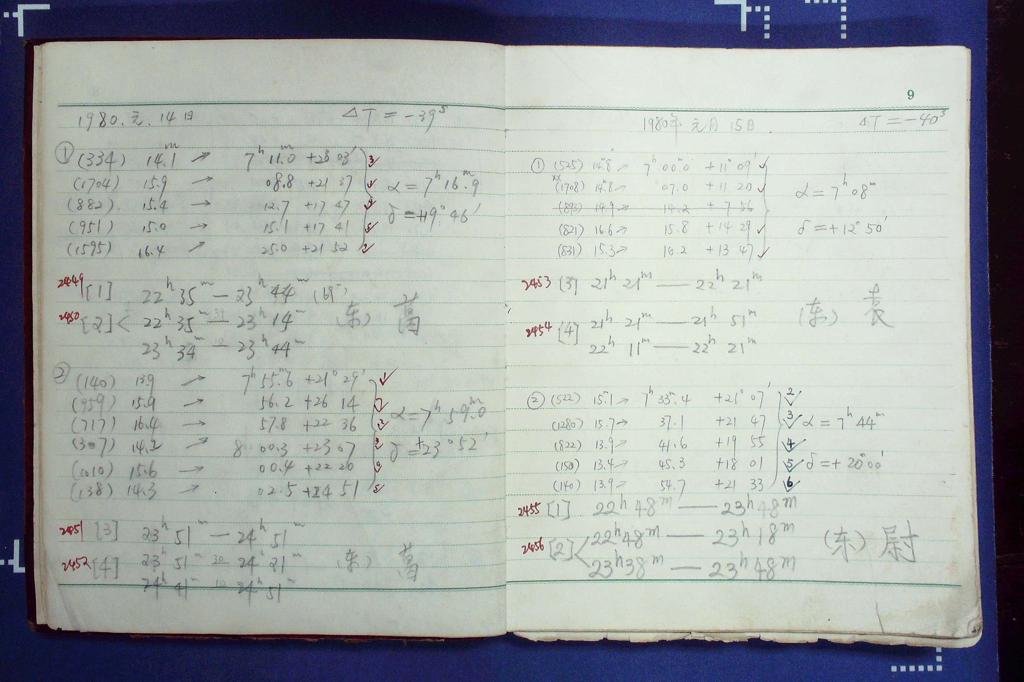 1980.元.14日 △T=-39ˢ
① (334) 14.1ᵐ → 7ʰ 11.0ᵐ +28°03′
(1704) 15.9 → 08.8 +21 37
(882) 15.4 → 12.7 +17 47
(951) 15.0 → 15.1 +17 41
(1595) 16.4 → 25.0 +21 52
α=7ʰ16ᵐ.9
δ=+19°46′
2449 [1] 22ʰ35ᵐ—23ʰ44ᵐ
2450 [2]< 22ʰ35ᵐ—23ʰ14ᵐ (东)
23ʰ34ᵐ—23ʰ44ᵐ
② (140) 13.9 → 7ʰ55ᵐ.6 +21°29′
(959) 15.9 → 56.2 +26 14
(717) 16.4 → 57.8 +22 36
(307) 14.2 → 8 00.3 +23 07
(1010) 15.6 → 00.4 +22 20
(138) 14.3 → 02.5 +24 51
α=7ʰ59ᵐ.0
δ=+23°52′
2451 [3] 23ʰ51ᵐ—24ʰ51ᵐ
2452 [4] 23ʰ51ᵐ—24ʰ21ᵐ (东)
24ʰ41ᵐ—24ʰ51ᵐ
9
1980年元月15日 △T=-40ˢ
① (525) 14.8 → 7ʰ00ᵐ.0 +11°09′
(1708) 14.8 → 07.0 +11 20
(893) 14.9 → 14.2 +7 56
(821) 16.6 → 15.8 +14 29
(831) 15.3 → 16.2 +13 47
α=7ʰ08ᵐ
δ=+12°50′
2453 [3] 21ʰ21ᵐ—22ʰ21ᵐ
(东) 袁
2454 [4] 21ʰ21ᵐ—21ʰ51ᵐ
22ʰ11ᵐ—22ʰ21ᵐ
② (522) 15.1 → 7ʰ33ᵐ.4 +21°07′ 2
(1280) 15.7 → 37.1 +21 47 3
(822) 13.9 → 41.6 +19 55 4
(150) 13.4 → 45.3 +18 01 5
(140) 13.9 → 54.7 +21 33 6
α=7ʰ44ᵐ
δ=+20°00′
2455 [1] 22ʰ48ᵐ—23ʰ48ᵐ
2456 [2]< 22ʰ48ᵐ—23ʰ18ᵐ (东) 尉
23ʰ38ᵐ—23ʰ48ᵐ